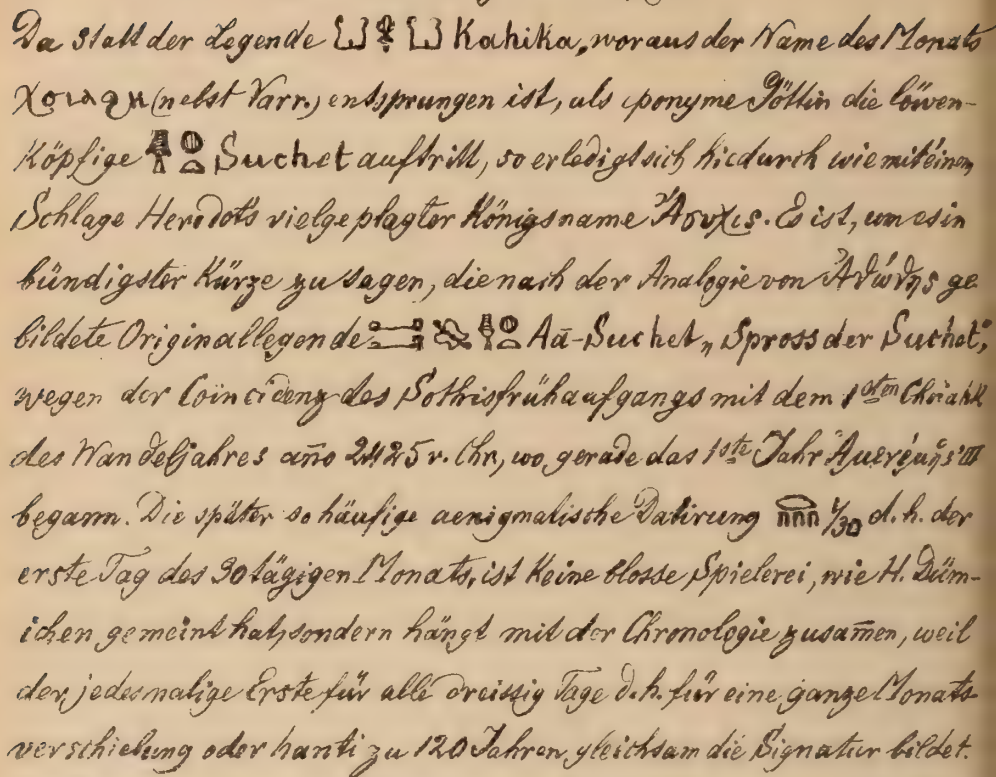 Da statt der Legende 𓂓𓎛𓂓 Kahika, woraus der Name des Monats
Χοιαϩκ (nebst Varr.) entsprungen ist, als eponyme Göttin die löwen-
köpfige Suchet auftritt, so erledigt sich hiedurch wie mit einem
Schlage Herodots vielgeplagter Königsname Ἄσυχις. Es ist, um es in
bündigster Kürze zu sagen, die nach der Analogie von Ἀθώθης ge
bildete Originallegende Aā-Suchet „Spross der Suchet",
wegen der Coincidenz des Sothisfrühaufgangs mit dem 1sten Choiahk
des Wandeljahres año 2425 v. Chr, wo gerade das 1ste Jahr III
begann. Die später so häufige aenigmatische Datirung 1/30 d. h. der
erste Tag des 30tägigen Monats, ist keine blosse Spielerei, wie H. Düm-
ichen gemeint hat, sondern hängt mit der Chronologie zusam̄en, weil
der jedesmalige Erste für alle dreissig Tage d. h. für eine ganze Monats-
verschiebung oder hanti zu 120 Jahren gleichsam die Signatur bildet.